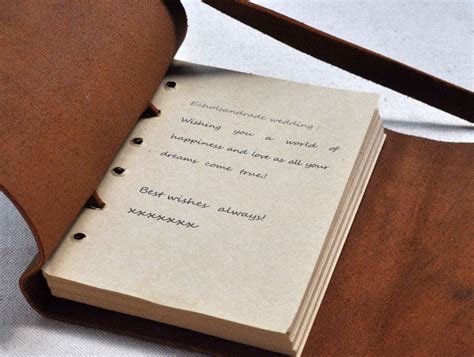 Echolsandrade wedding!
Wishing you a world of
happiness and love as all your
dreams come true!
Best wishes always!
xxxxxxx